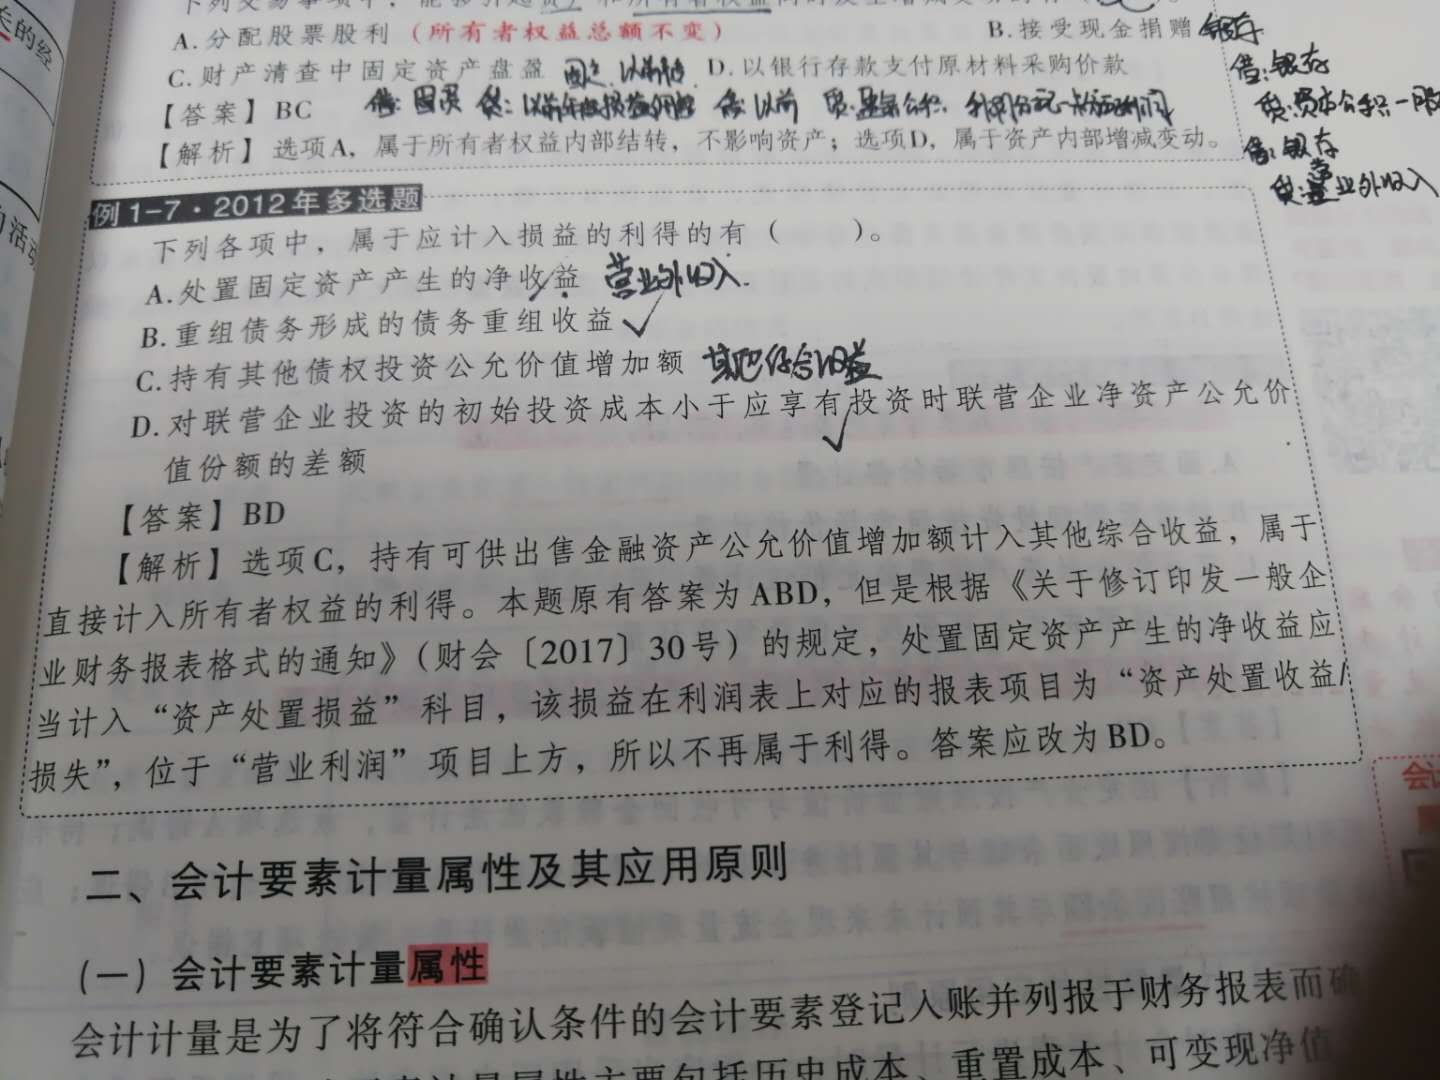 关的经
A.分配股票股利（所有者权益总额不变） B.接受现金捐赠 银存
C.财产清查中固定资产盘盈 D.以银行存款支付原材料采购价款
借:银存
【答案】BC
【解析】选项A，属于所有者权益内部结转，不影响资产；选项D，属于资产内部增减变动。
借:银存
贷:营业外收入
例1-7·2012年多选题
下列各项中，属于应计入损益的利得的有（ ）。
A.处置固定资产产生的净收益 营业外收入.
B.重组债务形成的债务重组收益 ✓
C.持有其他债权投资公允价值增加额 其他综合收益
D.对联营企业投资的初始投资成本小于应享有投资时联营企业净资产公允价
值份额的差额 ✓
【答案】BD
【解析】选项C，持有可供出售金融资产公允价值增加额计入其他综合收益，属于
直接计入所有者权益的利得。本题原有答案为ABD，但是根据《关于修订印发一般企
业财务报表格式的通知》（财会〔2017〕30号）的规定，处置固定资产产生的净收益应
当计入“资产处置损益”科目，该损益在利润表上对应的报表项目为“资产处置收益/
损失”，位于“营业利润”项目上方，所以不再属于利得。答案应改为BD。
二、会计要素计量属性及其应用原则
（一）会计要素计量属性
会计计量是为了将符合确认条件的会计要素登记入账并列报于财务报表而确
计量属性主要包括历史成本、重置成本、可变现净值